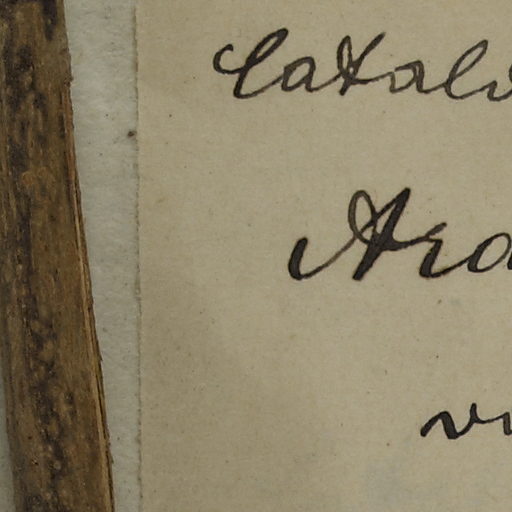 Catal
Ara
vi